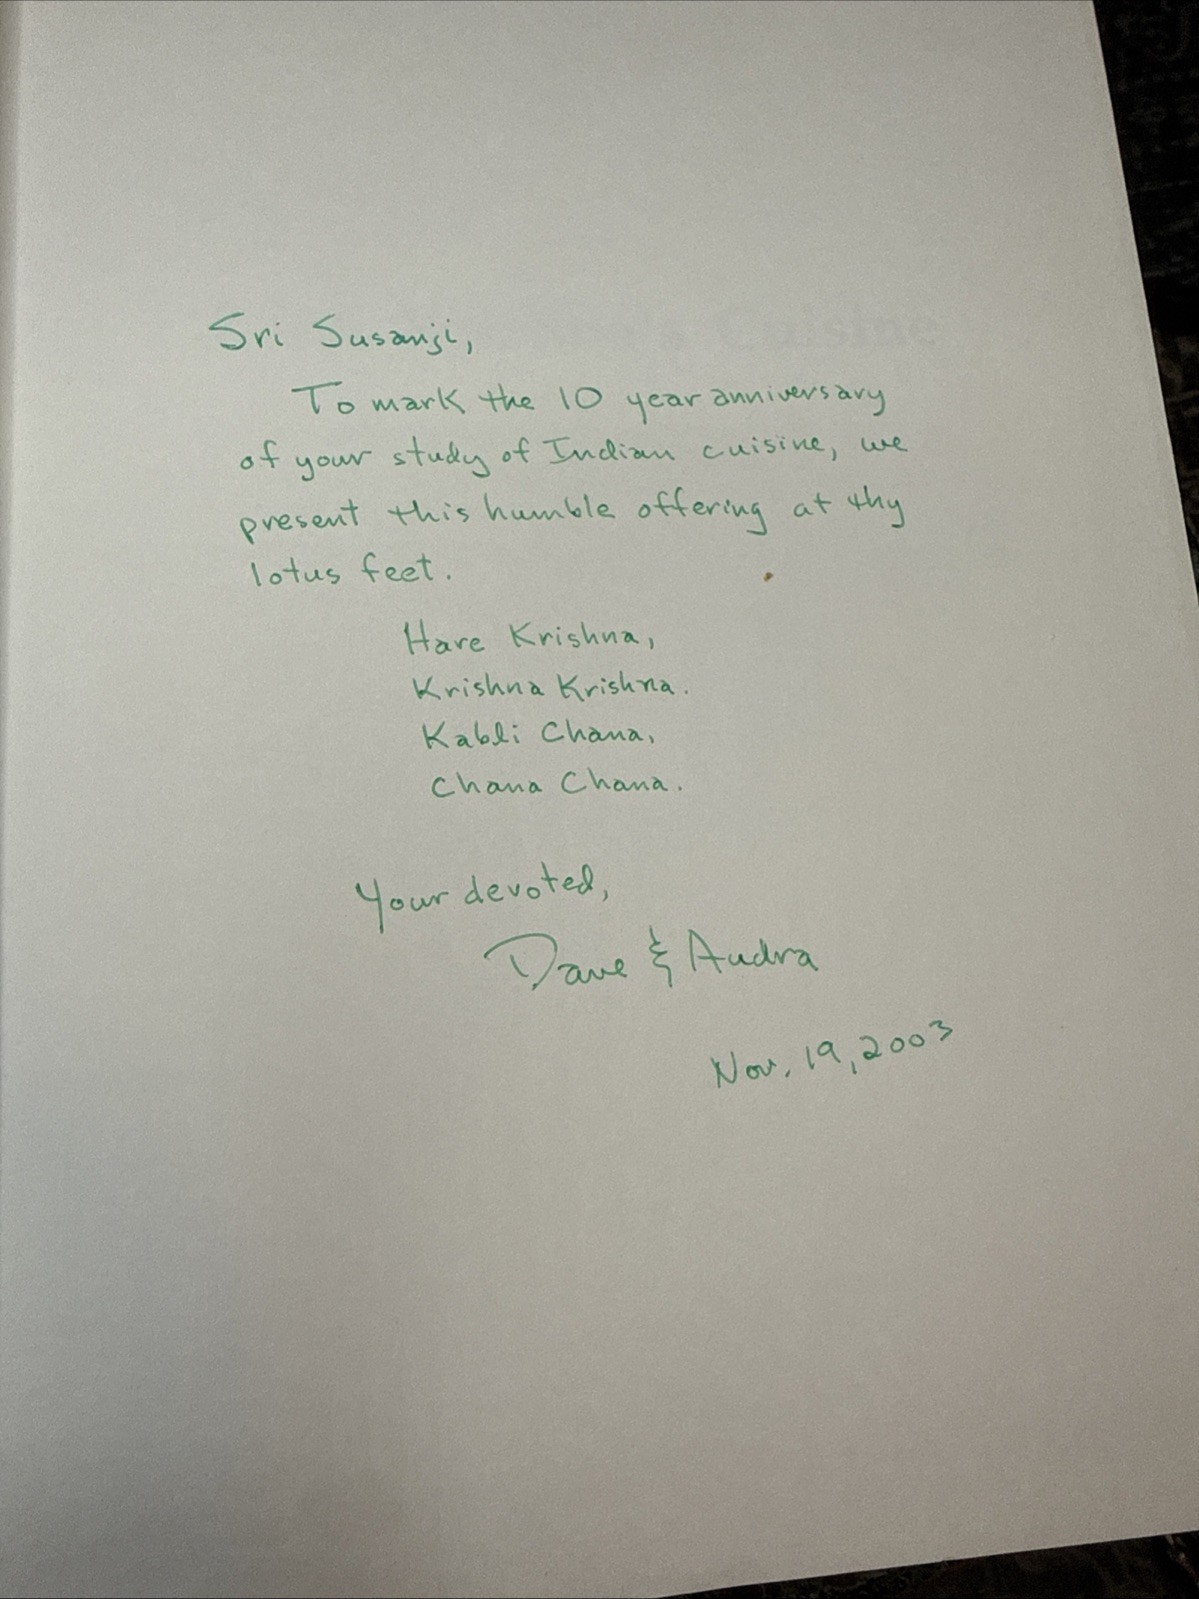 Sri Susanji,
To mark the 10 year anniversary
of your study of Indian cuisine, we
present this humble offering at thy
lotus feet.
Hare Krishna,
Krishna Krishna.
Kabli Chana,
Chana Chana.
Your devoted,
Dave & Audra
Nov. 19, 2003